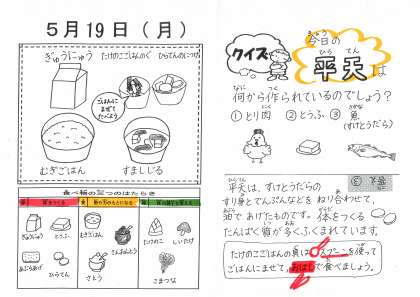 5月19日（月）
ぎゅうにゅう
たけのこごはんのぐ
ひらてんのにつけ
ごはんに
まぜて
たべよう
むぎごはん
すましじる
食べ物の三つのはたらき
赤
黄
緑
ぎゅうにゅう
とうふ
あぶらあげ
ひらてん
むぎごはん
さとう
たけのこ
しいたけ
こまつな
クイズ
今日の
きょう
平天は
ひら てん
何から作られているのでしょう？
①とり肉 ②とうふ ③魚
（すけとうだら）
平天は、すけとうだらの
すり身とでんぷんなどをねり合わせて、
油であげたものです。体をつくる
たんぱく質が多くふくまれています。
答え ③
たけのこごはんの具は スプーンを使って
ごはんにまぜて、おはしで食べましょう。